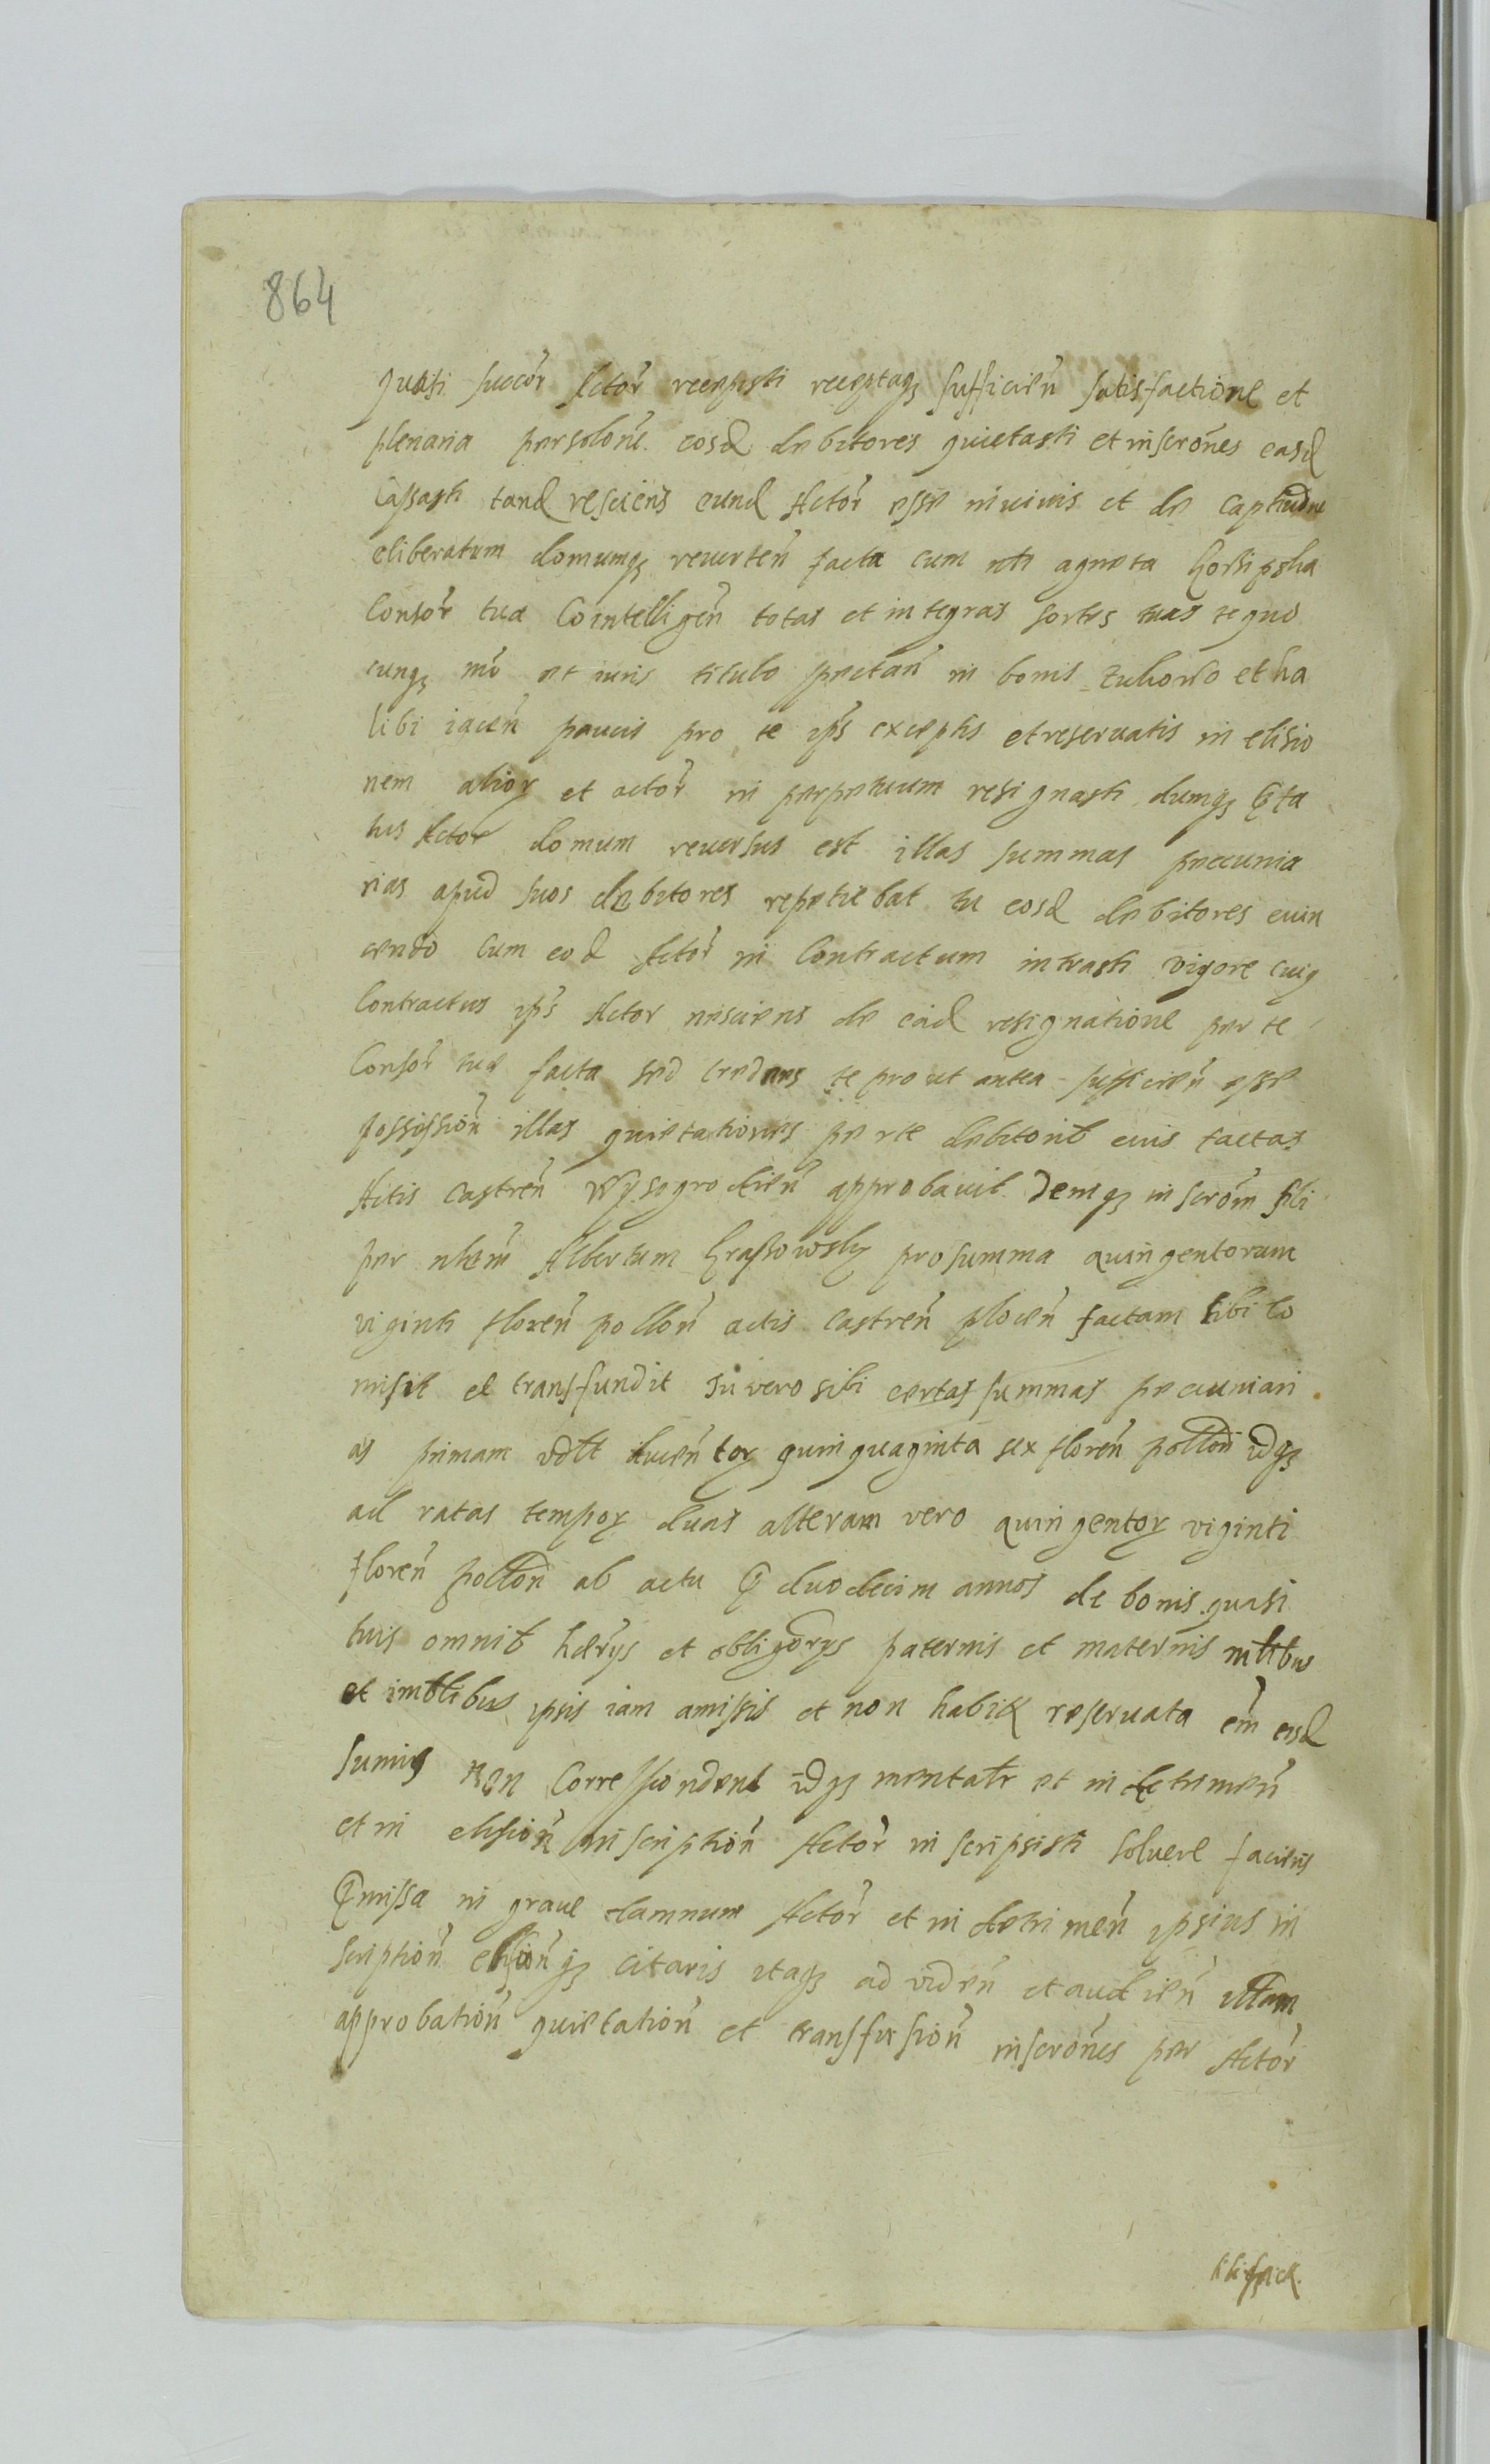 864
quasi succor̃ Actor̃ recepisti receptaq̃ sufficien̄ satisfactione et
plenaria persolon̄e eosd debitores quietasti et inscron̄es easd
Cassasti tand resciens eund Actor̃ esse in vivis et de captiudne
eliberatum domumq̃ reverten̄ facta cum nli agneta
Consor̃ tua Cointelligen̄ totas et integras sortes tuas te quo
cunq̃ mō et iuris titulo spectan̄ in bonis et ha
libi iacen̄ paucis pro te ip̄s exceptis et reservatis in elisio
nem alior̃ et actor̃ in perpetuum resignasti dumq̃ p̄fa
tus Actor domum reversus est illas summas pecunia
rias apud suos debitores repetiebat tu eosd debitores evin
cendo Cum eod Actor̃ in Contractum intrasti vigore cuiq
Contractus ip̄s Actor nesciens de ead resignatione per te
Consor̃ tua facta sed credens te prout antea sufficien̄ esse
possession̄ illas quietationes per te debitorib eius factas
Actis Castren̄ Wysogrodien̄ approbavit Demq̃ inscrom̄ sibi
per nlem̄ Albertum pro summa quingentorum
viginti floren̄ pollon̄ actis Castren̄ plocen̄ factam tibi co
misit et transfundit Tu vero sibi certas summas pecuniari
as primam vdlt ducentor̃ quinquaginta sex floren̄ pollon̄ idq̃
ad ratas tempor̃ duas alteram vero quingentor̃ viginti
floren̄ pollon̄ ab actu p̄ duodecim annos de bonis quasi
tuis omnib haerijs et obligorijs paternis et maternis mlibus
et im̄blibus ipsis iam amissis et non habitis reservata em̄ eisd
sumis non Correspondent idq̃ mentalr̃ et in detrimen̄
et in elision̄ inscription̄ Actor̃ inscripsisti solvere faciens
P̄missa in grave damnum Actor̃ et in detrimen̄ ipsius in
scription̄ elision̄q̃ Citaris itaq̃ ad viden̄ et audien̄ illam
approbation̄ quietation̄ et transfusion̄ inscron̄es per Actor̃